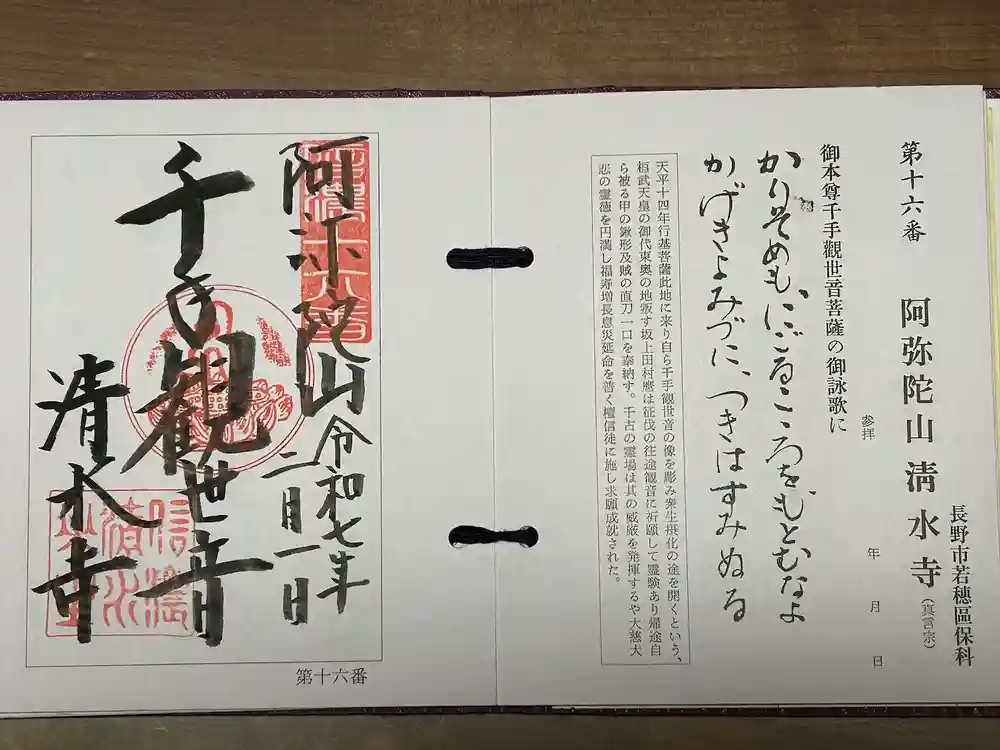 第十六番 阿弥陀山清水寺(真言宗)
長野市若穂區保科
参拝 年 月 日
御本尊千手觀世音菩薩の御詠歌に
かりそめもにごるこころをもとむなよ
かげきよみづに、つきはすみぬる
天平十四年行基菩薩此地に来り自ら千手観世音の像を彫み衆生摂化の途を開くという、
桓武天皇の御代東奥の地叛す坂上田村麿は征伐の往途観音に祈願して霊験あり帰途自
ら被る甲の鍬形及賊の直刀一口を奉納す。千古の霊場は其の威厳を発揮するや大慈大
悲の霊徳を円満し福寿増長息災延命を普く檀信徒に施し求願成就された。
阿弥陀山
令和七年
二月一日
千手観世音
清水寺
第十六番